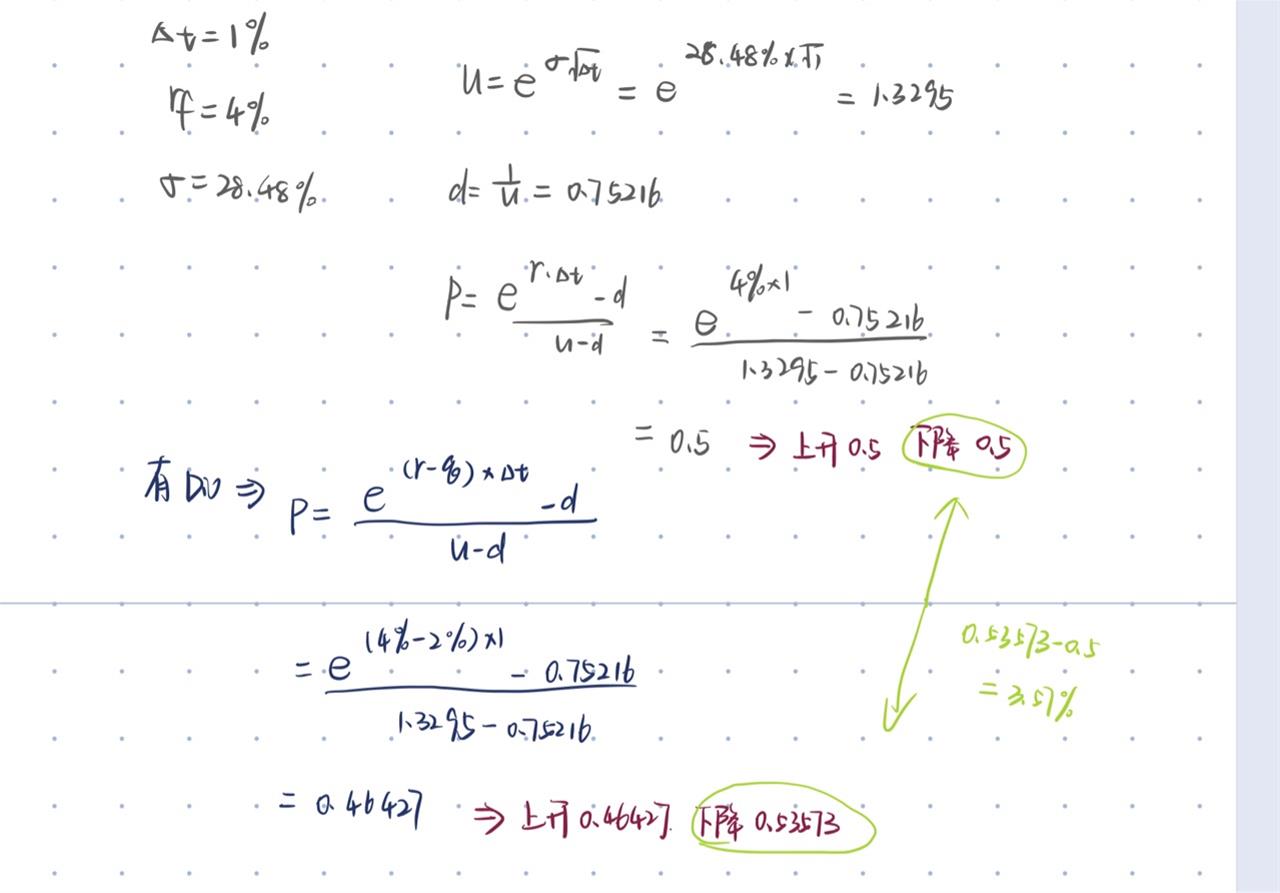 Δt = 1%
rf = 4%
σ = 28.48%
u = e^{σ√Δt} = e^{28.48% × √1} = 1.3295
d = 1/u = 0.75216
P = (e^{r·Δt} - d)/(u - d) = (e^{4%×1} - 0.75216)/(1.3295 - 0.75216)
= 0.5 ⇒ 上升 0.5 下降 0.5
有 DIV ⇒ P = (e^{(r-q)×Δt} - d)/(u - d)
= (e^{(4%-2%)×1} - 0.75216)/(1.3295 - 0.75216)
0.53573 - 0.5
= 3.57%
= 0.46427 ⇒ 上升 0.46427. 下降 0.53573